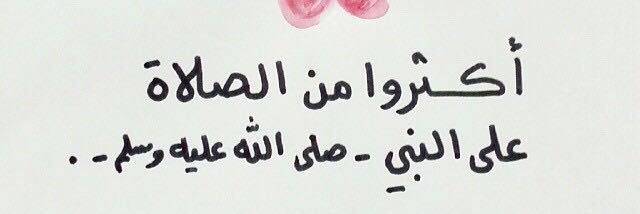 أكثروا من الصلاة
على النبي - صلى الله عليه وسلم - .